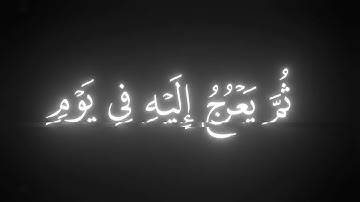 ثُمَّ يَعْرُجُ إِلَيْهِ فِي يَوْمٍ